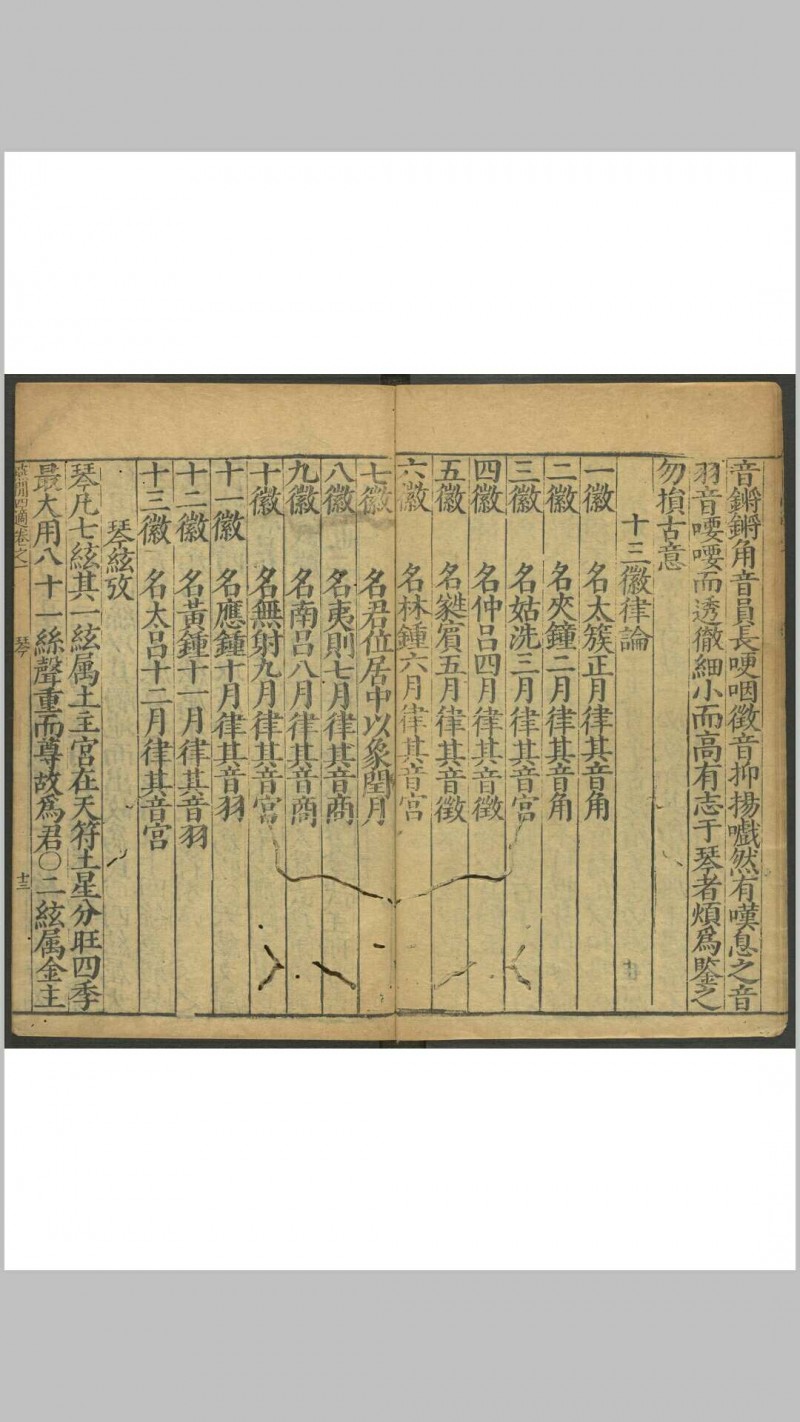 音鏘鏘角音員長哽咽徵音抑揚嚱然有嘆息之音
羽音嚶嚶而透徹細小而高有志于琴者煩為鑒之
勿損古意
十三徽律論
一徽 名太簇正月律其音角
二徽 名夾鐘二月律其音角
三徽 名姑洗三月律其音宮
四徽 名仲呂四月律其音徵
五徽 名蕤賓五月律其音徵
六徽 名林鍾六月律其音宮
七徽 名君位居中以象閏月
八徽 名夷則七月律其音商
九徽 名南呂八月律其音商
十徽 名無射九月律其音宮
十一徽 名應鍾十月律其音羽
十二徽 名黃鍾十一月律其音羽
十三徽 名太呂十二月律其音宮
琴絃攷
琴凡七絃其一絃属土主宮在天符土星分旺四季
最大用八十一絲聲重而尊故為君〇二絃属金主
燕閒四適卷之一 琴 十三